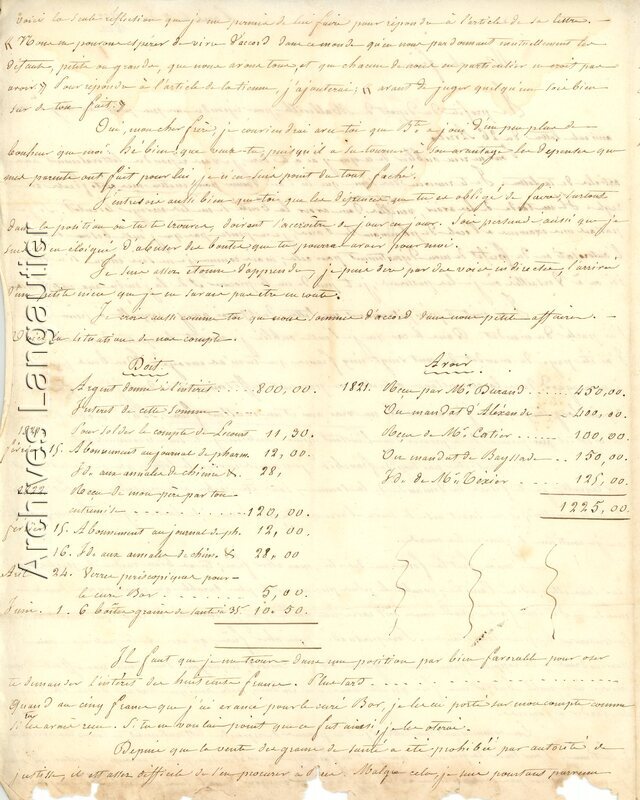 Voici la seule réflection que je me permis de lui faire pour répondre à l'article de sa lettre. —
« Nous ne pouvons espérer de vivre d'accord dans ce monde qu'en nous pardonnant mutuellement les
défauts, petits ou grands, que nous avons tous, et que chacun de nous en particulier ne croit pas
avoir. » Pour répondre à l'article de la tienne, j'ajouterai: « avant de juger quelqu'un sois bien
sur de ton fait. »
Oui, mon cher frère, je conviendrai avec toi que B.te a joui d'un peu plus de
bonheur que moi. Hé bien! que veux-tu, puisqu'il a su tourner à son avantage les depenses que
mes parents ont fait pour lui, je n'en suis point du tout faché.
J'entrevois aussi bien que toi que les dépenses que tu es obligé de faire, surtout
dans la position où tu te trouves, doivent s'accroître de jour en jour. Sois persuadé aussi que je
suis bien éloigné d'abuser des bontés que tu pourras avoir pour moi.
Je suis assez étonné d'apprendre, je puis dire par des voies indirectes, l'arrivée
d'une petite nièce que je ne savais pas être en route.
Je crois aussi comme toi que nous sommes d'accord dans nos petites affaires. —
Voici la situation de nos comptes.
Doit. Avoir.
Argent donné à l'intérêt ..... 800,00. 1821. Reçu par Mr. Durand ..... 450,00.
Intérêt de cette somme ..... Du mandat d'Alexandre ..... 400,00.
Pour solder le compte de Lecourt 11,30. Reçu de Mr. Catier ..... 100,00.
février 15. Abonnement au journal de pharm. 12,00. Du mandat de Bayssade ..... 150,00.
Id. aux annales de chimie &. 28, Id. de Mr. Texier ..... 125,00.
Reçu de mon père par ton 1225,00.
entremise ..... 120,00.
février 15. Abonnement au journal de ph. 12,00.
16. Id. aux annales de chim. & 28,00
24. Verres periscopiques pour
le curé Bor. ..... 5,00.
Juin. 1. 6 boîtes grains de santé à 35. 10.50.
Il faut que je me trouve dans une position pas bien favorable pour oser
te demander l'intérêt des huit cents francs. Plus tard .....
Quant aux cinq francs que j'ai avancé pour le curé Bor, je les ai porté sur mon compte comme
si tu les avais reçu. Si tu ne voulais point que ce fut ainsi, je les oterai.
Depuis que la vente des grains de santé a été prohibée par autorité de
justice, il est assez difficile de s'en procurer à Paris. Malgré cela, je suis pourtant parvenu
Archives Langautier